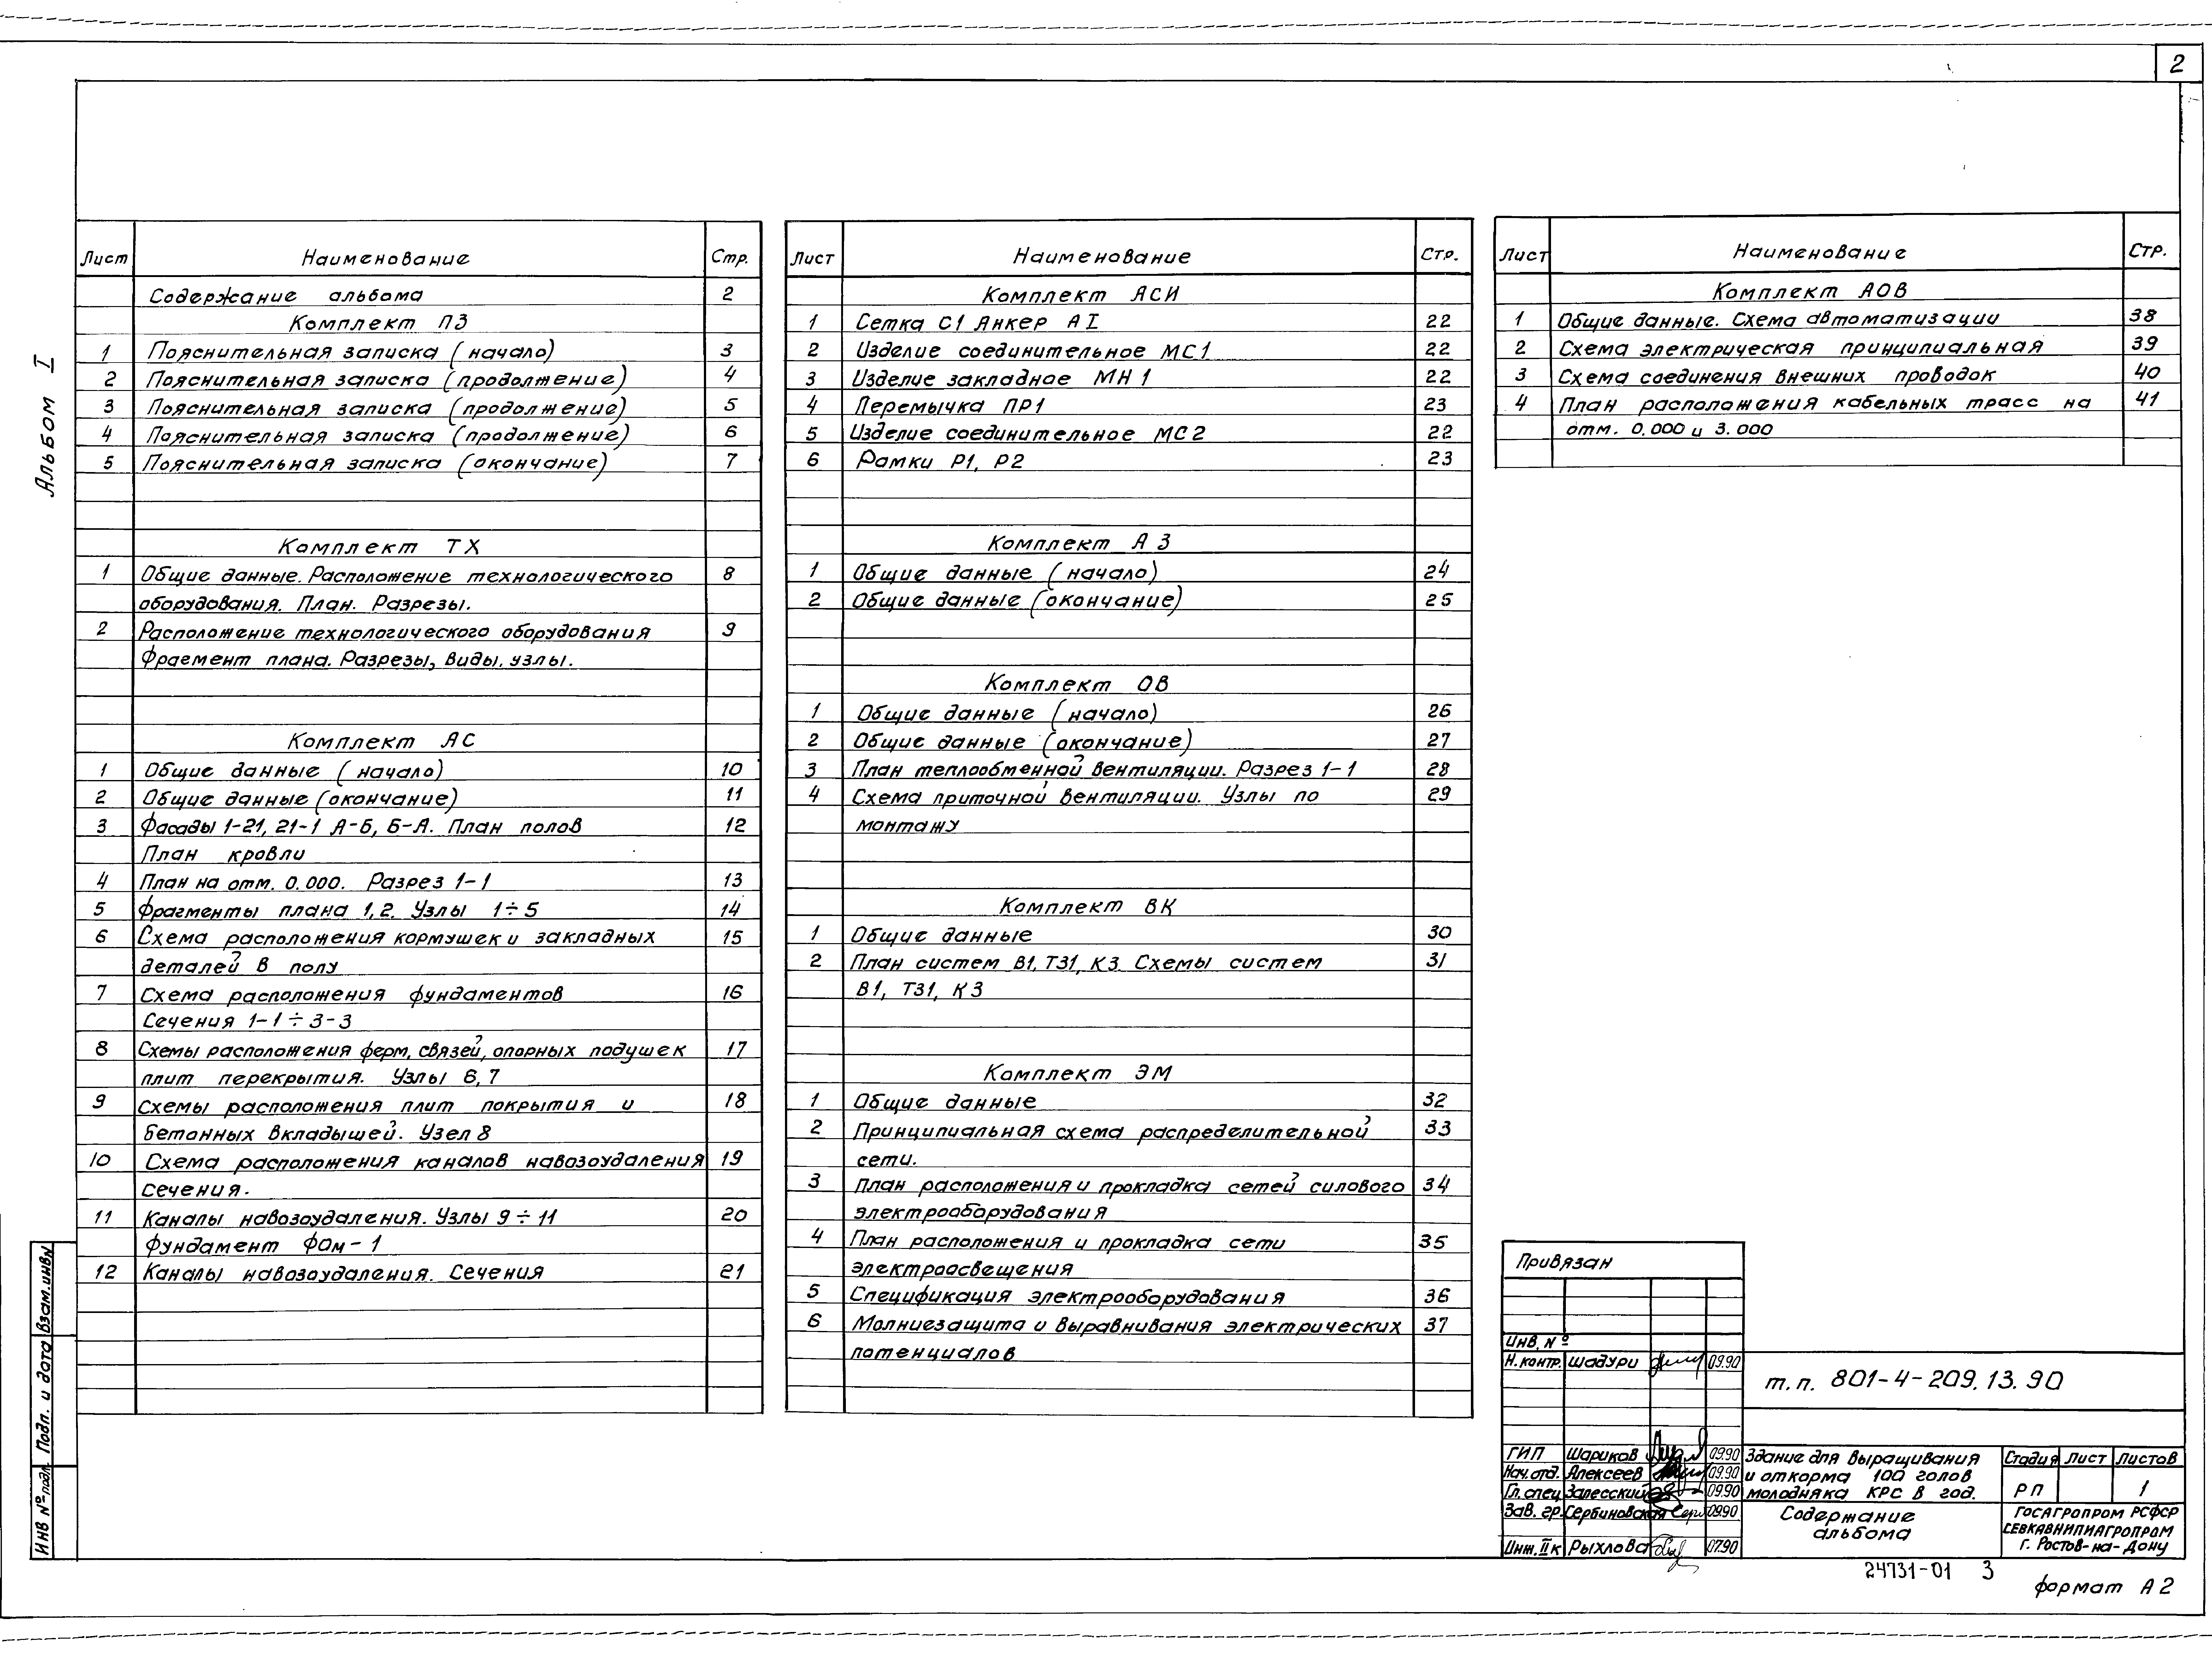 2
Альбом I
Лист Наименование Стр.
Содержание альбома 2
Комплект ПЗ
1 Пояснительная записка (начало) 3
2 Пояснительная записка (продолжение) 4
3 Пояснительная записка (продолжение) 5
4 Пояснительная записка (продолжение) 6
5 Пояснительная записка (окончание) 7
Комплект ТХ
1 Общие данные. Расположение технологического 8
оборудования. План. Разрезы.
2 Расположение технологического оборудования 9
Фрагмент плана. Разрезы, виды, узлы.
Комплект АС
1 Общие данные (начало) 10
2 Общие данные (окончание) 11
3 Фасады 1-21, 21-1 А-Б, Б-А. План полов 12
План кровли
4 План на отм. 0.000. Разрез 1-1 13
5 Фрагменты плана 1,2. Узлы 1÷5 14
6 Схема расположения кормушек и закладных 15
деталей в полу
7 Схема расположения фундаментов 16
Сечения 1-1÷3-3
8 Схемы расположения ферм, связей, опорных подушек 17
плит перекрытия. Узлы 6,7
9 Схемы расположения плит покрытия и 18
бетонных вкладышей. Узел 8
10 Схема расположения каналов навозоудаления 19
Сечения.
11 Каналы навозоудаления. Узлы 9÷11 20
Фундамент ФОм-1
12 Каналы навозоудаления. Сечения 21
Лист Наименование Стр.
Комплект АСИ
1 Сетка С1 Анкер АI 22
2 Изделие соединительное МС1 22
3 Изделие закладное МН1 22
4 Перемычка ПР1 23
5 Изделие соединительное МС2 22
6 Рамки Р1, Р2 23
Комплект АЗ
1 Общие данные (начало) 24
2 Общие данные (окончание) 25
Комплект ОВ
1 Общие данные (начало) 26
2 Общие данные (окончание) 27
3 План теплообменной вентиляции. Разрез 1-1 28
4 Схема приточной вентиляции. Узлы по 29
монтажу
Комплект ВК
1 Общие данные 30
2 План систем В1, Т31, К3. Схемы систем 31
В1, Т31, К3
Комплект ЭМ
1 Общие данные 32
2 Принципиальная схема распределительной 33
сети.
3 План расположения и прокладка сетей силового 34
электрооборудования
4 План расположения и прокладка сети 35
электроосвещения
5 Спецификация электрооборудования 36
6 Молниезащита и выравнивания электрических 37
потенциалов
Лист Наименование Стр.
Комплект АОВ
1 Общие данные. Схема автоматизации 38
2 Схема электрическая принципиальная 39
3 Схема соединения внешних проводок 40
4 План расположения кабельных трасс на 41
отм. 0.000 и 3.000
Привязан
Инв. №
Н. контр. Шадури 09.90
т.п. 801-4-209.13.90
ГИП Шариков 09.90
Нач. отд. Алексеев 09.90
Гл. спец. Залесский 09.90
Зав. гр. Сербиновская 09.90
Инж. II к Рыхлова 07.90
Здание для выращивания
и откорма 100 голов
молодняка КРС в год.
Содержание
альбома
Стадия Лист Листов
РП 1
ГОСАГРОПРОМ РСФСР
СЕВКАВНИПИАГРОПРОМ
г. Ростов-на-Дону
24731-01 3
формат А2
Взам. инв N
Подп. и дата
Инв № подл.